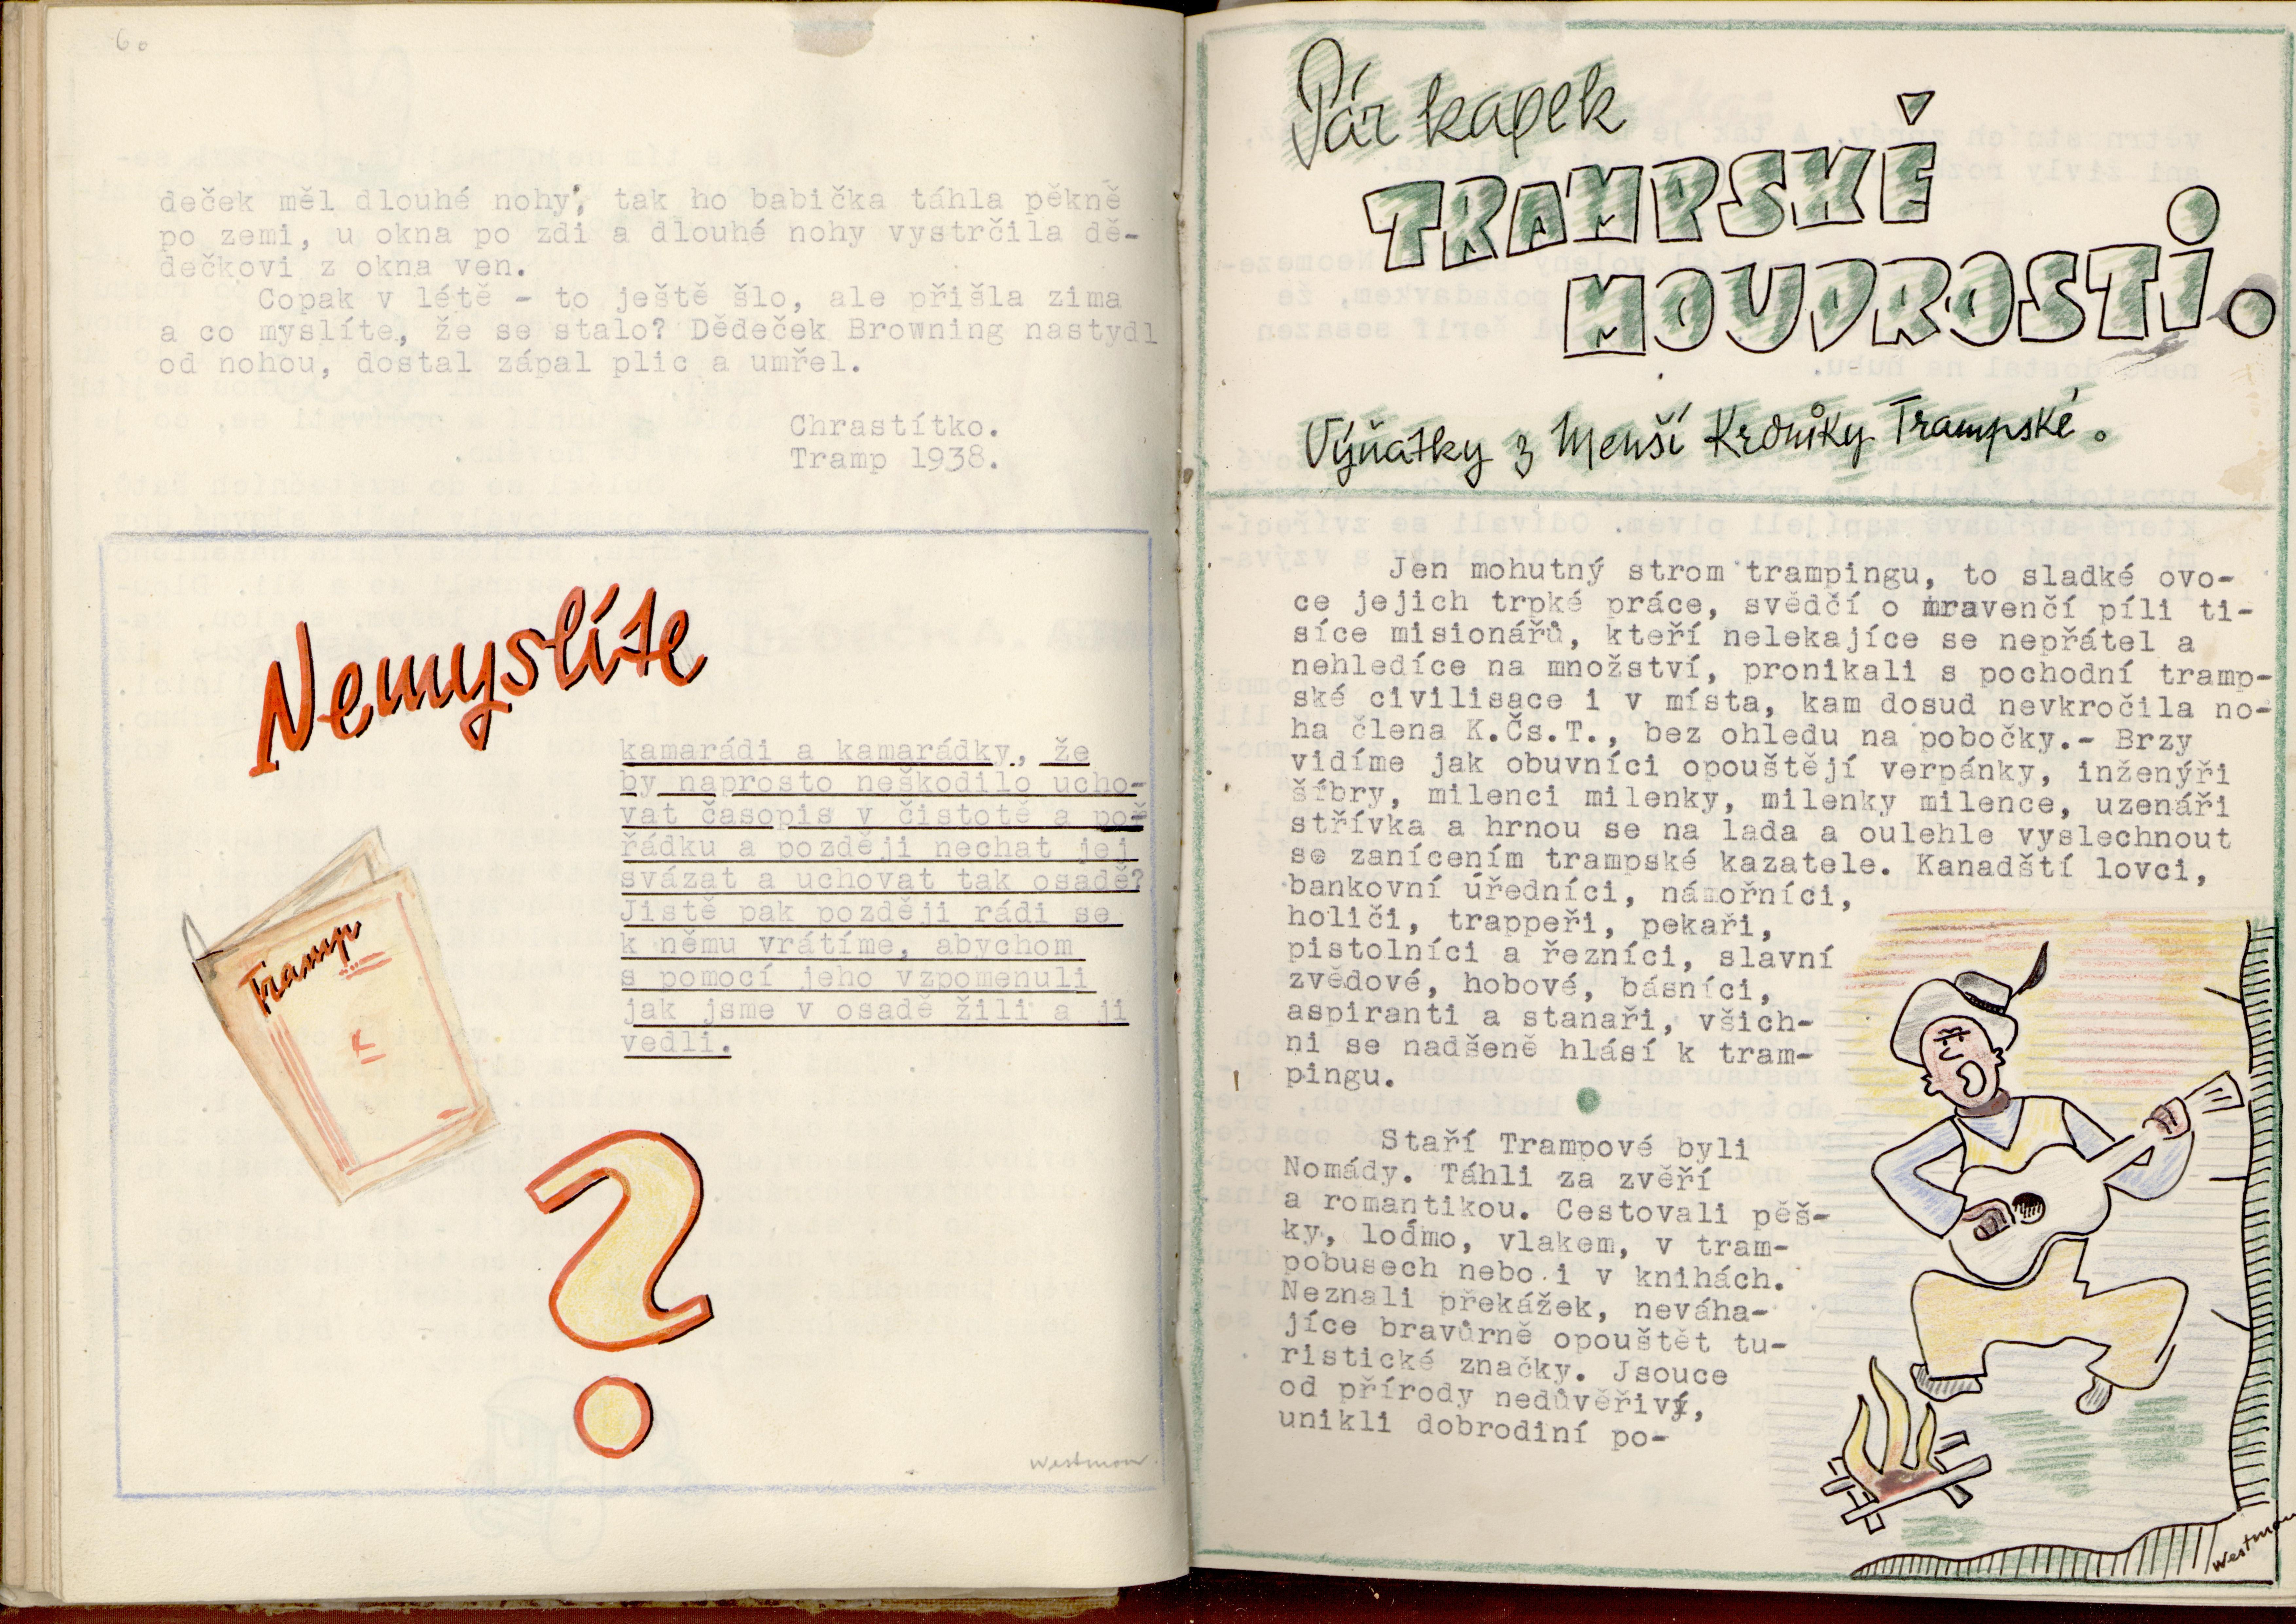 60
deček měl dlouhé nohy, tak ho babička táhla pěkně
po zemi, u okna po zdi a dlouhé nohy vystrčila dě-
dečkovi z okna ven.
Copak v létě - to ještě šlo, ale přišla zima
a co myslíte, že se stalo? Dědeček Browning nastydl
od nohou, dostal zápal plic a umřel.
Chrastítko.
Tramp 1938.
Nemyslíte
kamarádi a kamarádky, že
by naprosto neškodilo ucho-
vat časopis v čistotě a po-
řádku a později nechat jej
svázat a uchovat tak osadě?
Jistě pak později rádi se
k němu vrátíme, abychom
s pomocí jeho vzpomenuli
jak jsme v osadě žili a ji
vedli.
Tramp
?
Westman
Pár kapek
TRAMPSKÉ
MOUDROSTI.
Výňatky z Menší Kroniky Trampské.
Jen mohutný strom trampingu, to sladké ovo-
ce jejich trpké práce, svědčí o mravenčí píli ti-
síce misionářů, kteří nelekajíce se nepřátel a
nehledíce na množství, pronikali s pochodní tramp-
ské civilisace i v místa, kam dosud nevkročila no-
ha člena K.Čs.T., bez ohledu na pobočky.- Brzy
vidíme jak obuvníci opouštějí verpánky, inženýři
šíbry, milenci milenky, milenky milence, uzenáři
střívka a hrnou se na lada a oulehle vyslechnout
se zanícením trampské kazatele. Kanadští lovci,
bankovní úředníci, námořníci,
holiči, trappeři, pekaři,
pistolníci a řezníci, slavní
zvědové, hobové, básníci,
aspiranti a stanaři, všich-
ni se nadšeně hlásí k tram-
pingu.
Staří Trampové byli
Nomády. Táhli za zvěří
a romantikou. Cestovali pěš-
ky, loďmo, vlakem, v tram-
pobusech nebo i v knihách.
Neznali překážek, neváha-
jíce bravůrně opouštět tu-
ristické značky. Jsouce
od přírody nedůvěřiví,
unikli dobrodiní po-
Westman